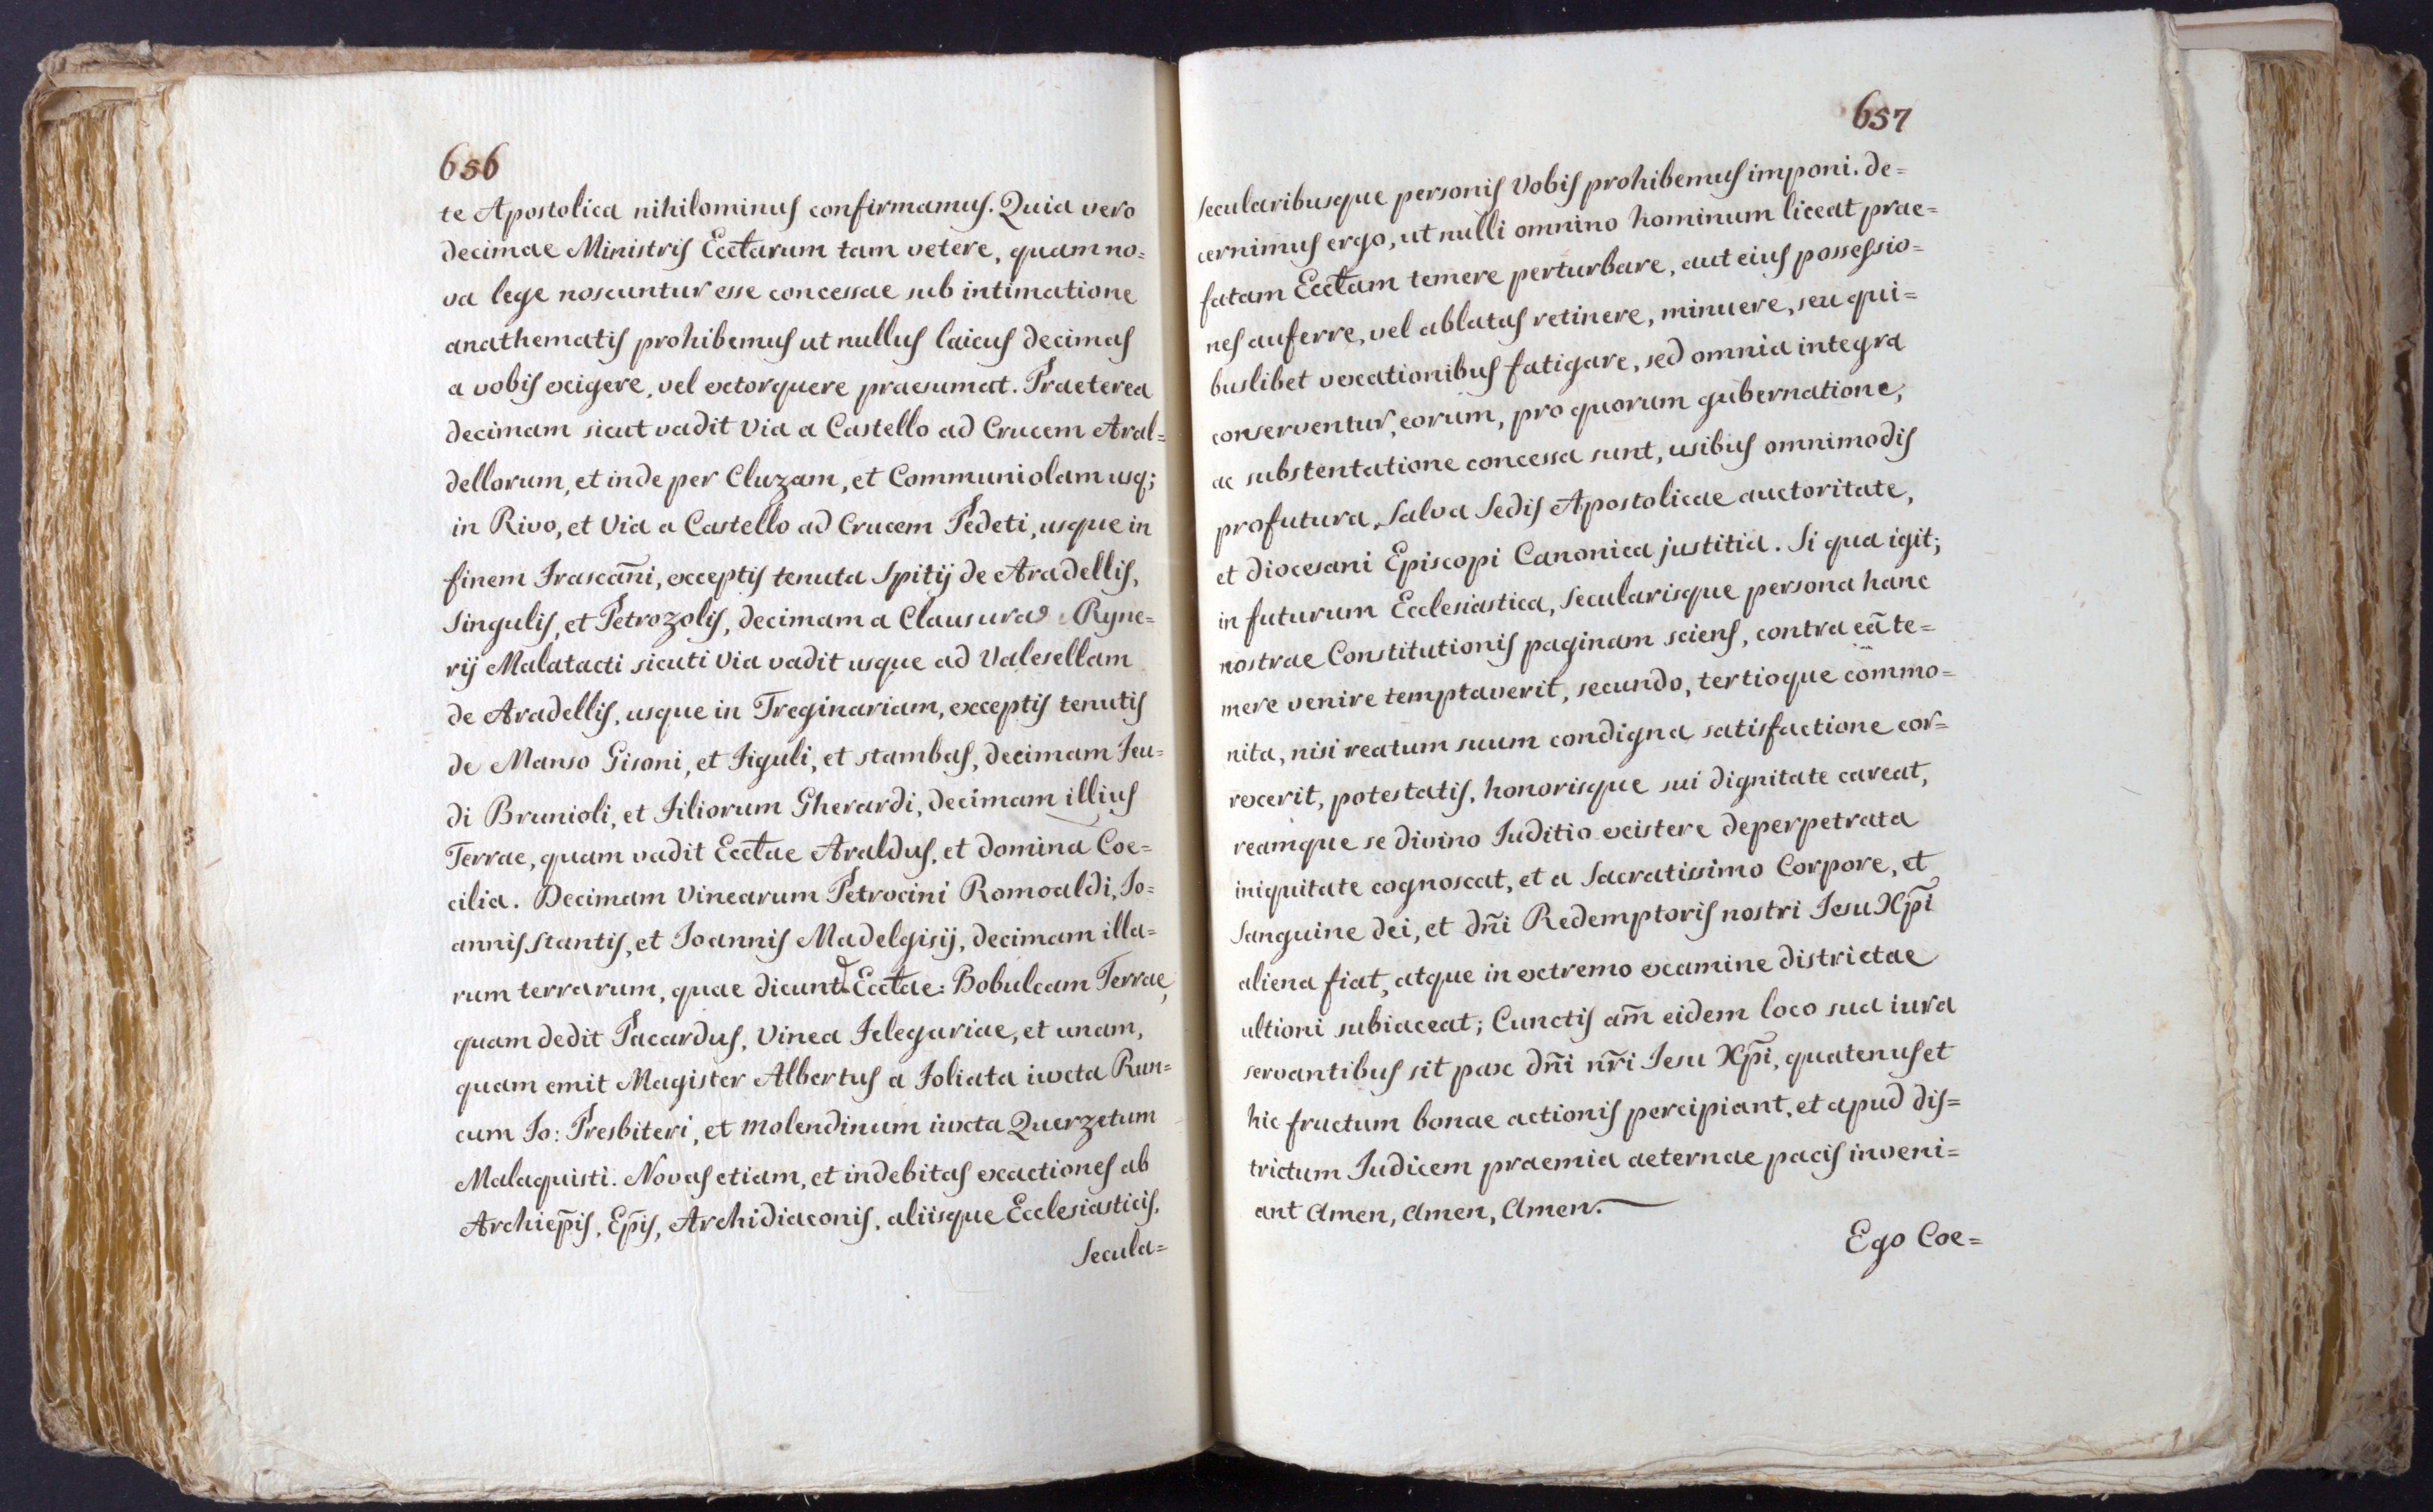 656
te Apostolica nihilominus confirmamus. Quia vero
decimae Ministris Eccłarum tam vetere, quam no=
va lege noscuntur esse concessae sub intimatione
anathematis prohibemus ut nullus laicus decimas
a vobis exigere, vel extorquere praesumat. Praeterea
decimam sicut vadit via a Castello ad Crucem Aral=
dellorum, et inde per Cluzam, et Communiolam usq;
in Rivo, et Via a Castello ad Crucem Pedeti, usque in
finem Frascan̄i, exceptis tenuta Spitij de Aradellis,
Singulis, et Petrozolis, decimam a Clausura Ryne=
rij Malatacti sicuti via vadit usque ad Valesellam
de Aradellis, usque in Treginariam, exceptis tenutis
de Manso Gisoni, et Figuli, et stambas, decimam Feu=
di Brunioli, et Filiorum Gherardi, decimam illius
Terrae, quam vadit Eccłae Araldus, et domina Coe=
cilia. Decimam Vinearum Petrocini Romoaldi, Io=
annis Stantis, et Joannis Madelgisij, decimam illa=
rum terrarum, quae dicunt Eccłae: Bobulcam Terrae,
quam dedit Pacardus, Vinea Felegariae, et unam,
quam emit Magister Albertus a Foliata iuxta Run=
cum Io: Presbiteri, et Molendinum iuxta Querzetum
Malaquisti. Novas etiam, et indebitas exactiones ab
Archiep̄is, Ep̄is, Archidiaconis, aliisque Ecclesiasticis,
Secula=
657
secularibusque personis Vobis prohibemus imponi. de=
cernimus ergo, ut nulli omnino hominum liceat prae=
fatam Eccłam temere perturbare, aut eius possessio=
nes auferre, vel ablatas retinere, minuere, seu qui=
buslibet vexationibus fatigare, sed omnia integra
conserventur, eorum, pro quorum gubernatione,
ac substentatione concessa sunt, usibus omnimodis
profutura, Salva Sedis Apostolicae auctoritate,
et diocesani Episcopi Canonica justitia. Si qua igit;
in futurum Ecclesiastica, Secularisque persona hanc
nostrae Constitutionis paginam sciens, contra eā te=
mere venire temptaverit, secundo, tertioque commo=
nita, nisi reatum suum condigna satisfactione cor=
rexerit, potestatis, honorisque sui dignitate careat,
reamque se divino Iuditio existere de perpetrata
iniquitate cognoscat, et a Sacratissimo Corpore, et
Sanguine dei, et dn̄i Redemptoris nostri Iesu Xp̄i
aliena fiat, atque in extremo examine districtae
ultioni subiaceat; Cunctis am̄ eidem loco sua iura
servantibus sit pax dn̄i nr̄i Iesu Xp̄i, quatenus et
hic fructum bonae actionis percipiant, et apud dis=
trictum Iudicem praemia aeternae pacis inveni=
ant Amen, Amen, Amen.
Ego Coe=